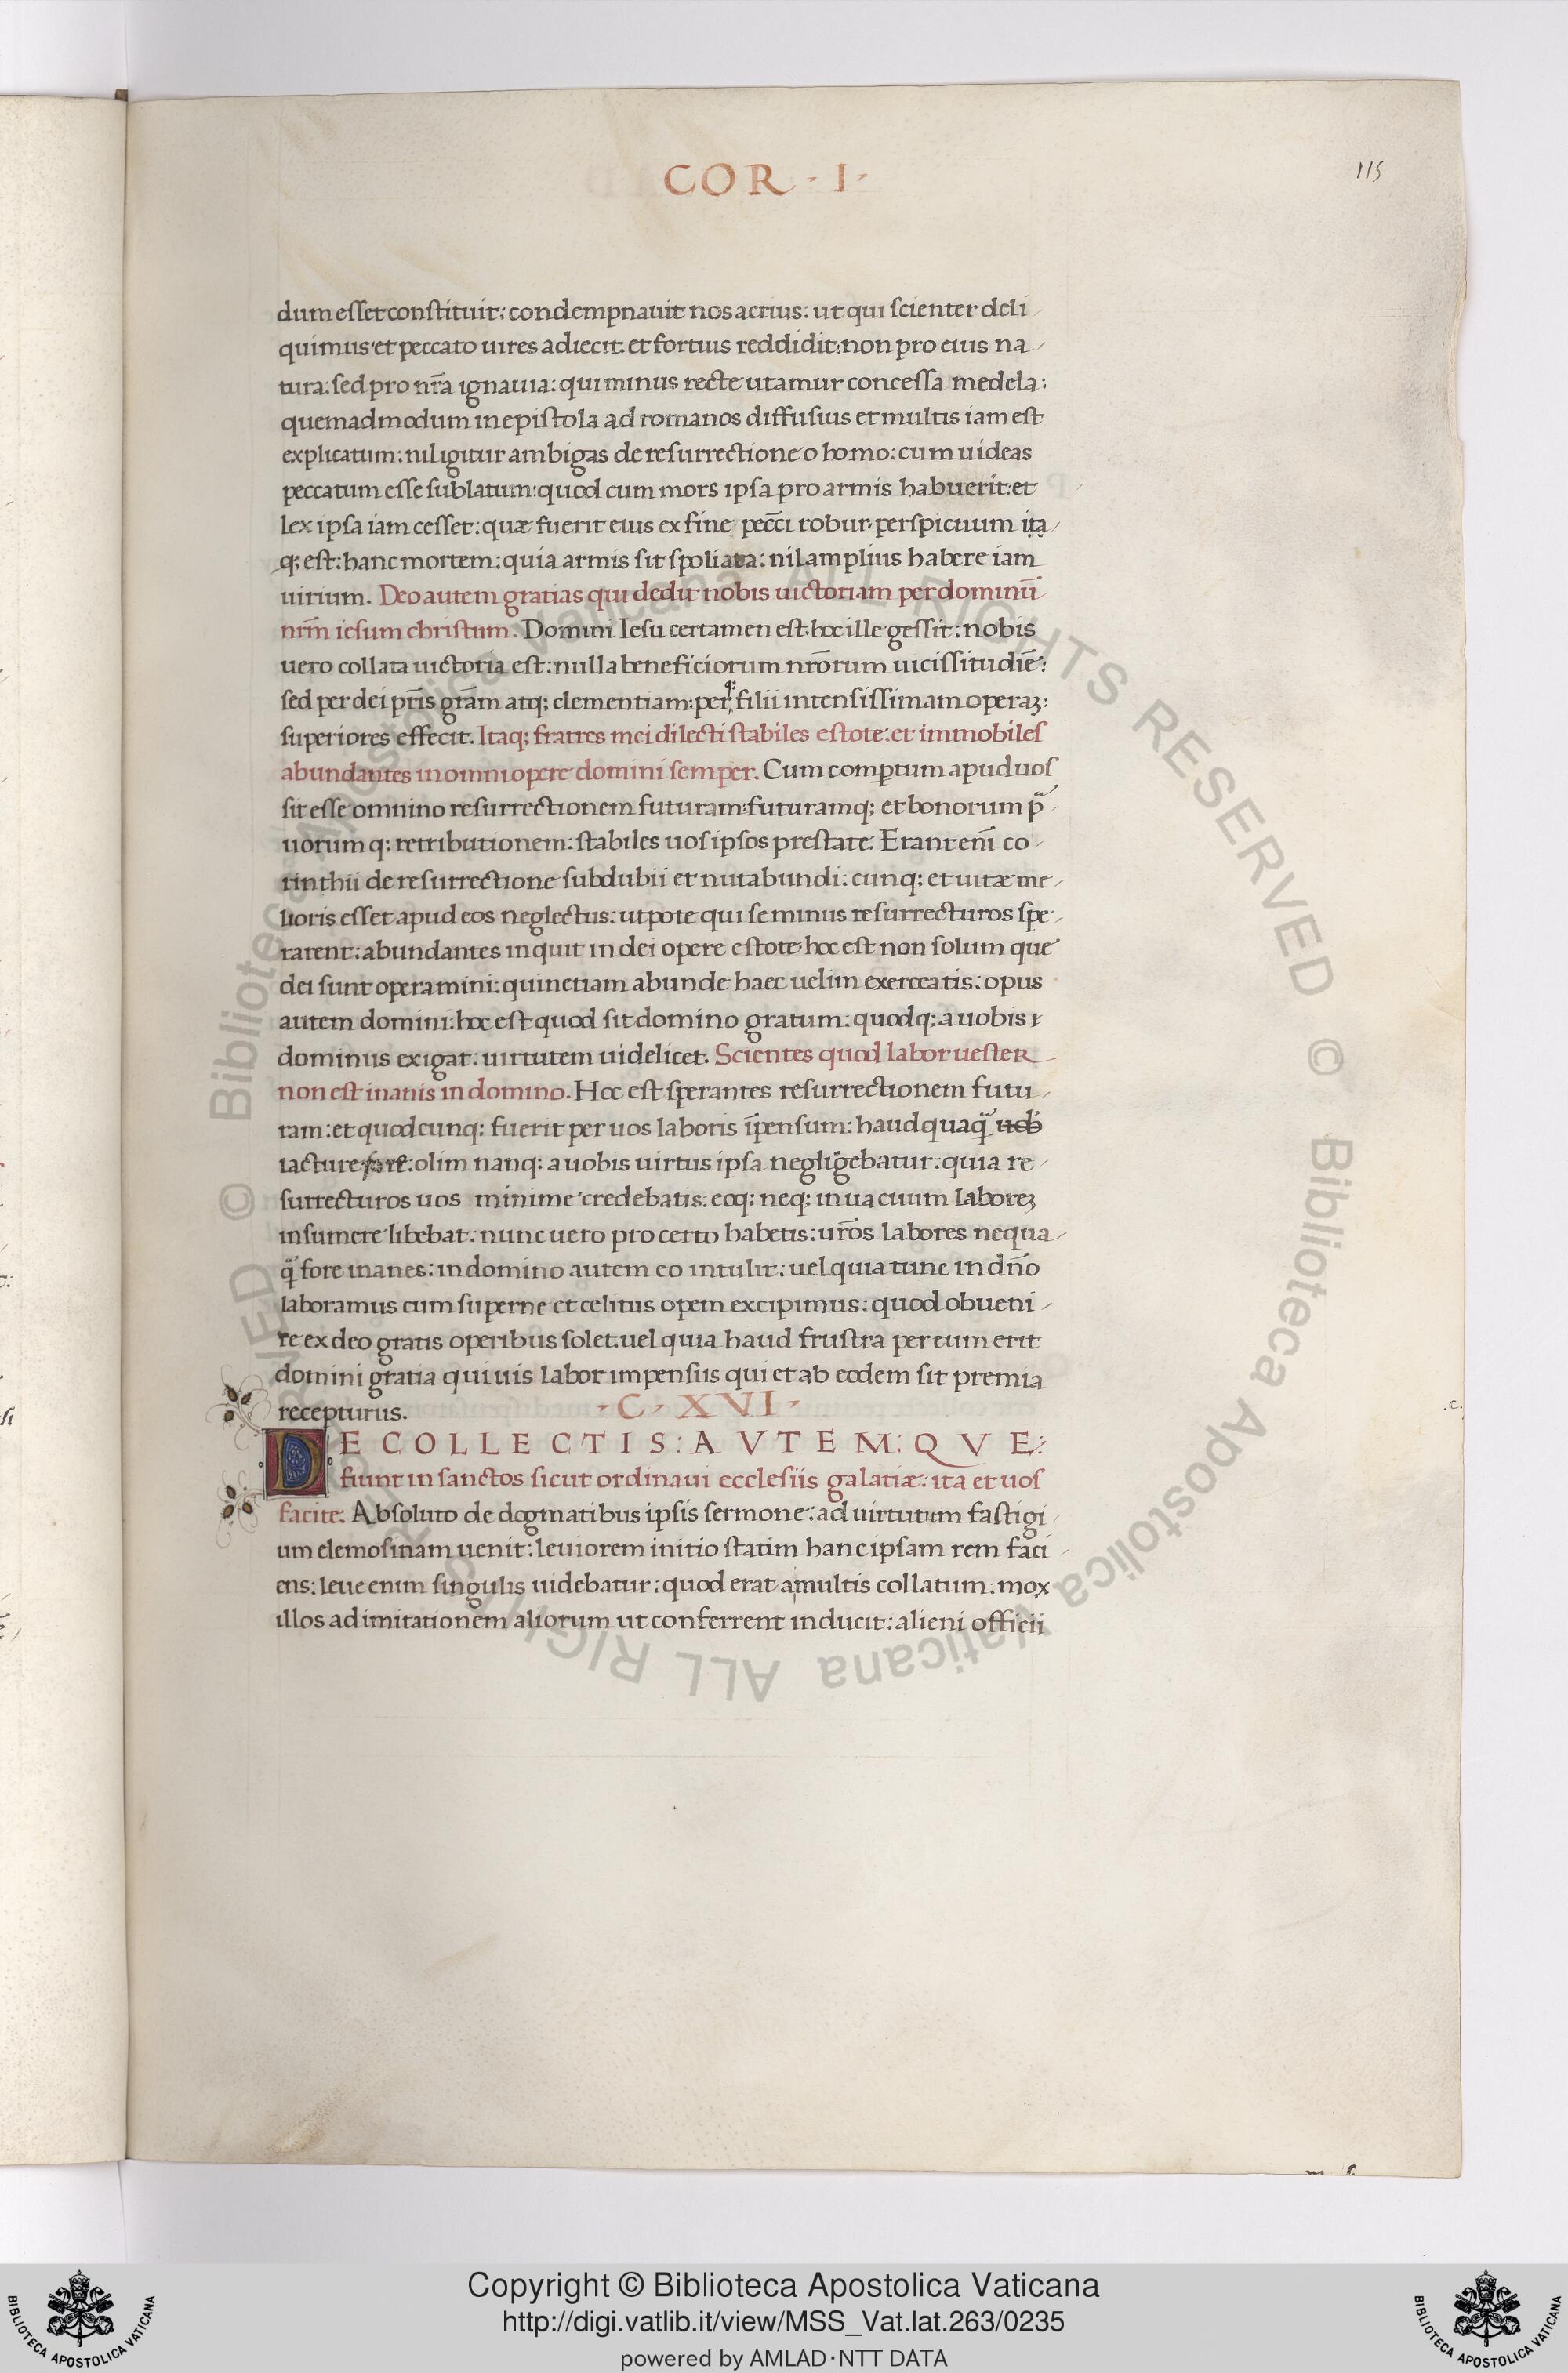 COR · I ·
115
dum esset constituit: condempnauit nos acrius: ut qui scienter deli
quimus: et peccato uires adiecit. et fortius reddidit: non pro eius na
tura: sed pro nr̄a ignauia: qui minus recte utamur concessa medela:
quemadmodum in epistola ad romanos diffusius et multis iam est
explicatum: nil igitur ambigas de resurrectione o homo: cum uideas
peccatum esse sublatum: quod cum mors ipsa pro armis habuerit: et
lex ipsa iam cesset: quæ fuerit eius ex fine pecc̄i robur. perspicuum ita
q; est: hanc mortem: quia armis sit spoliata: nil amplius habere iam
uirium. Deo autem gratias qui dedit nobis uictoriam per dominū
nrm̄ iesum christum. Domini Iesu certamen est. hoc ille gessit: nobis
uero collata uictoria est: nulla beneficiorum nr̄orum uicissitudiē:
sed per dei pr̄is grām atq; clementiam: per q; filii intensissimam operaꝫ:
superiores effecit. Itaq; fratres mei dilecti stabiles estote: et immobiles
abundantes in omni opere domini semper. Cum compertum apud uos
sit esse omnino resurrectionem futuram: futuramq; et bonorum p̄
uorum q; retributionem: stabiles uos ipsos prestate. Erant enī co
rinthii de resurrectione subdubii et nutabundi. cunq; et uitæ me
lioris esset apud eos neglectus: utpote qui se minus resurrecturos spe
rarent: abundantes inquit in dei opere estote hoc est non solum que
dei sunt operamini: quinetiam abunde haec uelim exerceatis: opus
autem domini: hoc est quod sit domino gratum: quodq; a uobis
dominus exigat: uirtutem uidelicet. Scientes quod labor uester
non est inanis in domino. Hoc est sperantes resurrectionem futu
ram: et quodcunq; fuerit per uos laboris īpensum: haudquaq̄
iacture fore: olim nanq; a uobis uirtus ipsa negligebatur. quia re
surrecturos uos minime credebatis. eoq; neq; in uacuum laboreꝫ
insumere libebat: nunc uero pro certo habetis: ur̄os labores nequa
q̄ fore inanes: in domino autem eo intulit: uel quia tunc in dn̄o
laboramus cum superne et celitus opem excipimus: quod obueni
re ex deo gratis operibus solet. uel quia haud frustra per eum erit
domini gratia quiuis labor impensus qui et ab eodem sit premia
recepturus.
· C · XVI ·
DE COLLECTIS: AVTEM: QVE:
fiunt in sanctos sicut ordinaui ecclesiis galatiæ: ita et uos
facite. Absoluto de dogmatibus ipsis sermone: ad uirtutum fastigi
um elemosinam uenit: leuiorem initio statim hanc ipsam rem faci
ens: leue enim singulis uidebatur: quod erat a multis collatum: mox
illos ad imitationem aliorum ut conferrent inducit: alieni officii
© Biblioteca Apostolica Vaticana ALL RIGHTS RESERVED © Biblioteca Apostolica Vaticana ALL RIGHTS RESERVED
Copyright © Biblioteca Apostolica Vaticana
http://digi.vatlib.it/view/MSS_Vat.lat.263/0235
powered by AMLAD·NTT DATA
BIBLIOTECA APOSTOLICA VATICANA
BIBLIOTECA APOSTOLICA VATICANA